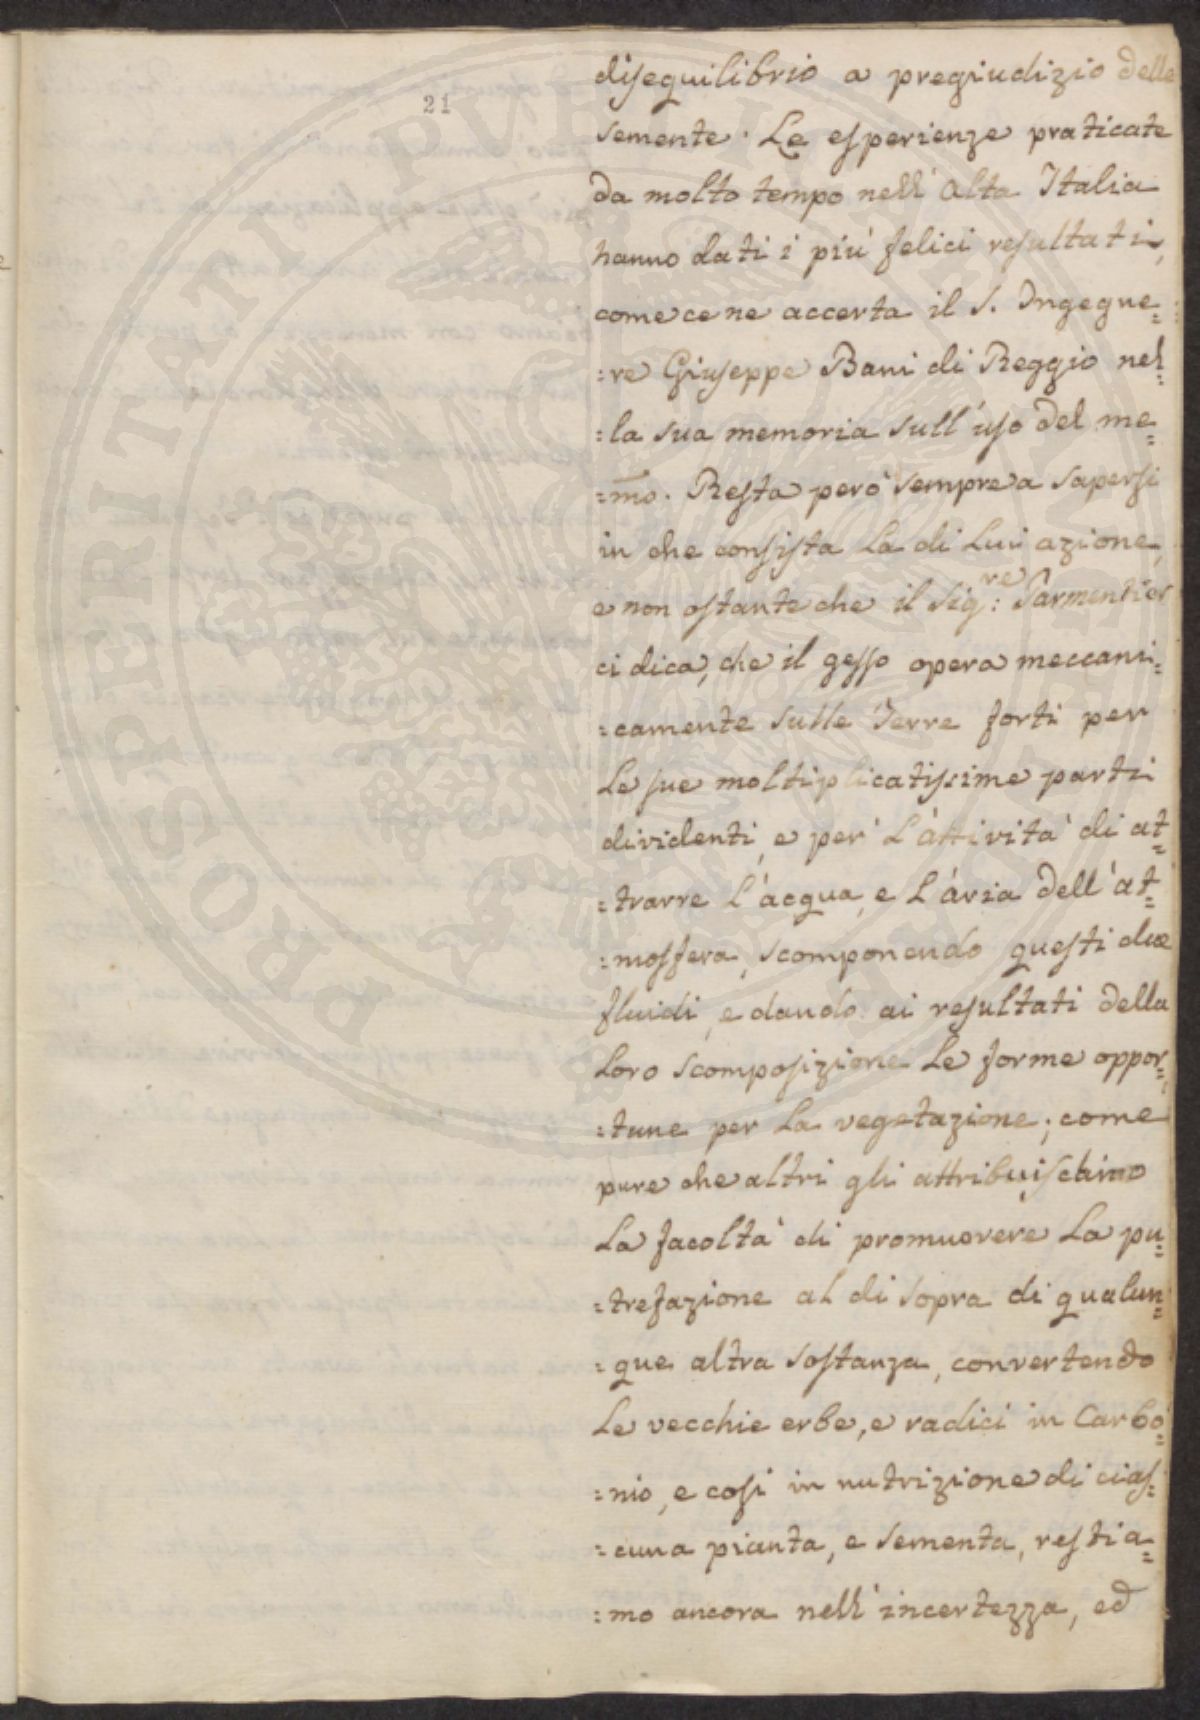 21
disequilibrio a pregiudizio delle
semente. Le esperienze praticate
da molto tempo nell'Alta Italia
hanno dati i più felici resultati,
come ce ne accerta il S. Ingegne=
=re Giuseppe Bani di Reggio nel=
=la sua memoria sull'uso del me=
=m̃o. Resta però sempre a sapersi
in che consista la di Lui azione,
e non ostante che il Sig:re Parmentier
ci dica, che il gesso opera meccani=
=camente sulle Terre forti per
le sue moltiplicatissime parti
dividenti, e per L'attività di at=
=trarre L'acqua, e L'aria dell'at=
=mosfera, scomponendo questi due
fluidi, e dando ai resultati della
loro scomposizione le forme oppor=
=tune per la vegetazione; come
pure che altri gli attribuischino
La facoltà di promuovere La pu=
=trefazione al di sopra di qualun=
=que altra sostanza, convertendo
Le vecchie erbe, e radici in Carbo=
=nio, e così in nutrizione di cias=
=cuna pianta, e sementa, restia=
=mo ancora nell'incertezza, ed
PROSPERITATI PVBLICAE